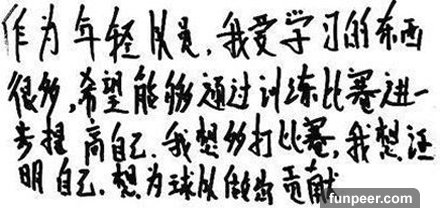 作为年轻队员,我要学习的东西
很多,希望能够通过训练比赛进一
步提高自己.我想多打比赛,我想证
明自己.想为球队做出贡献
funpeer.com